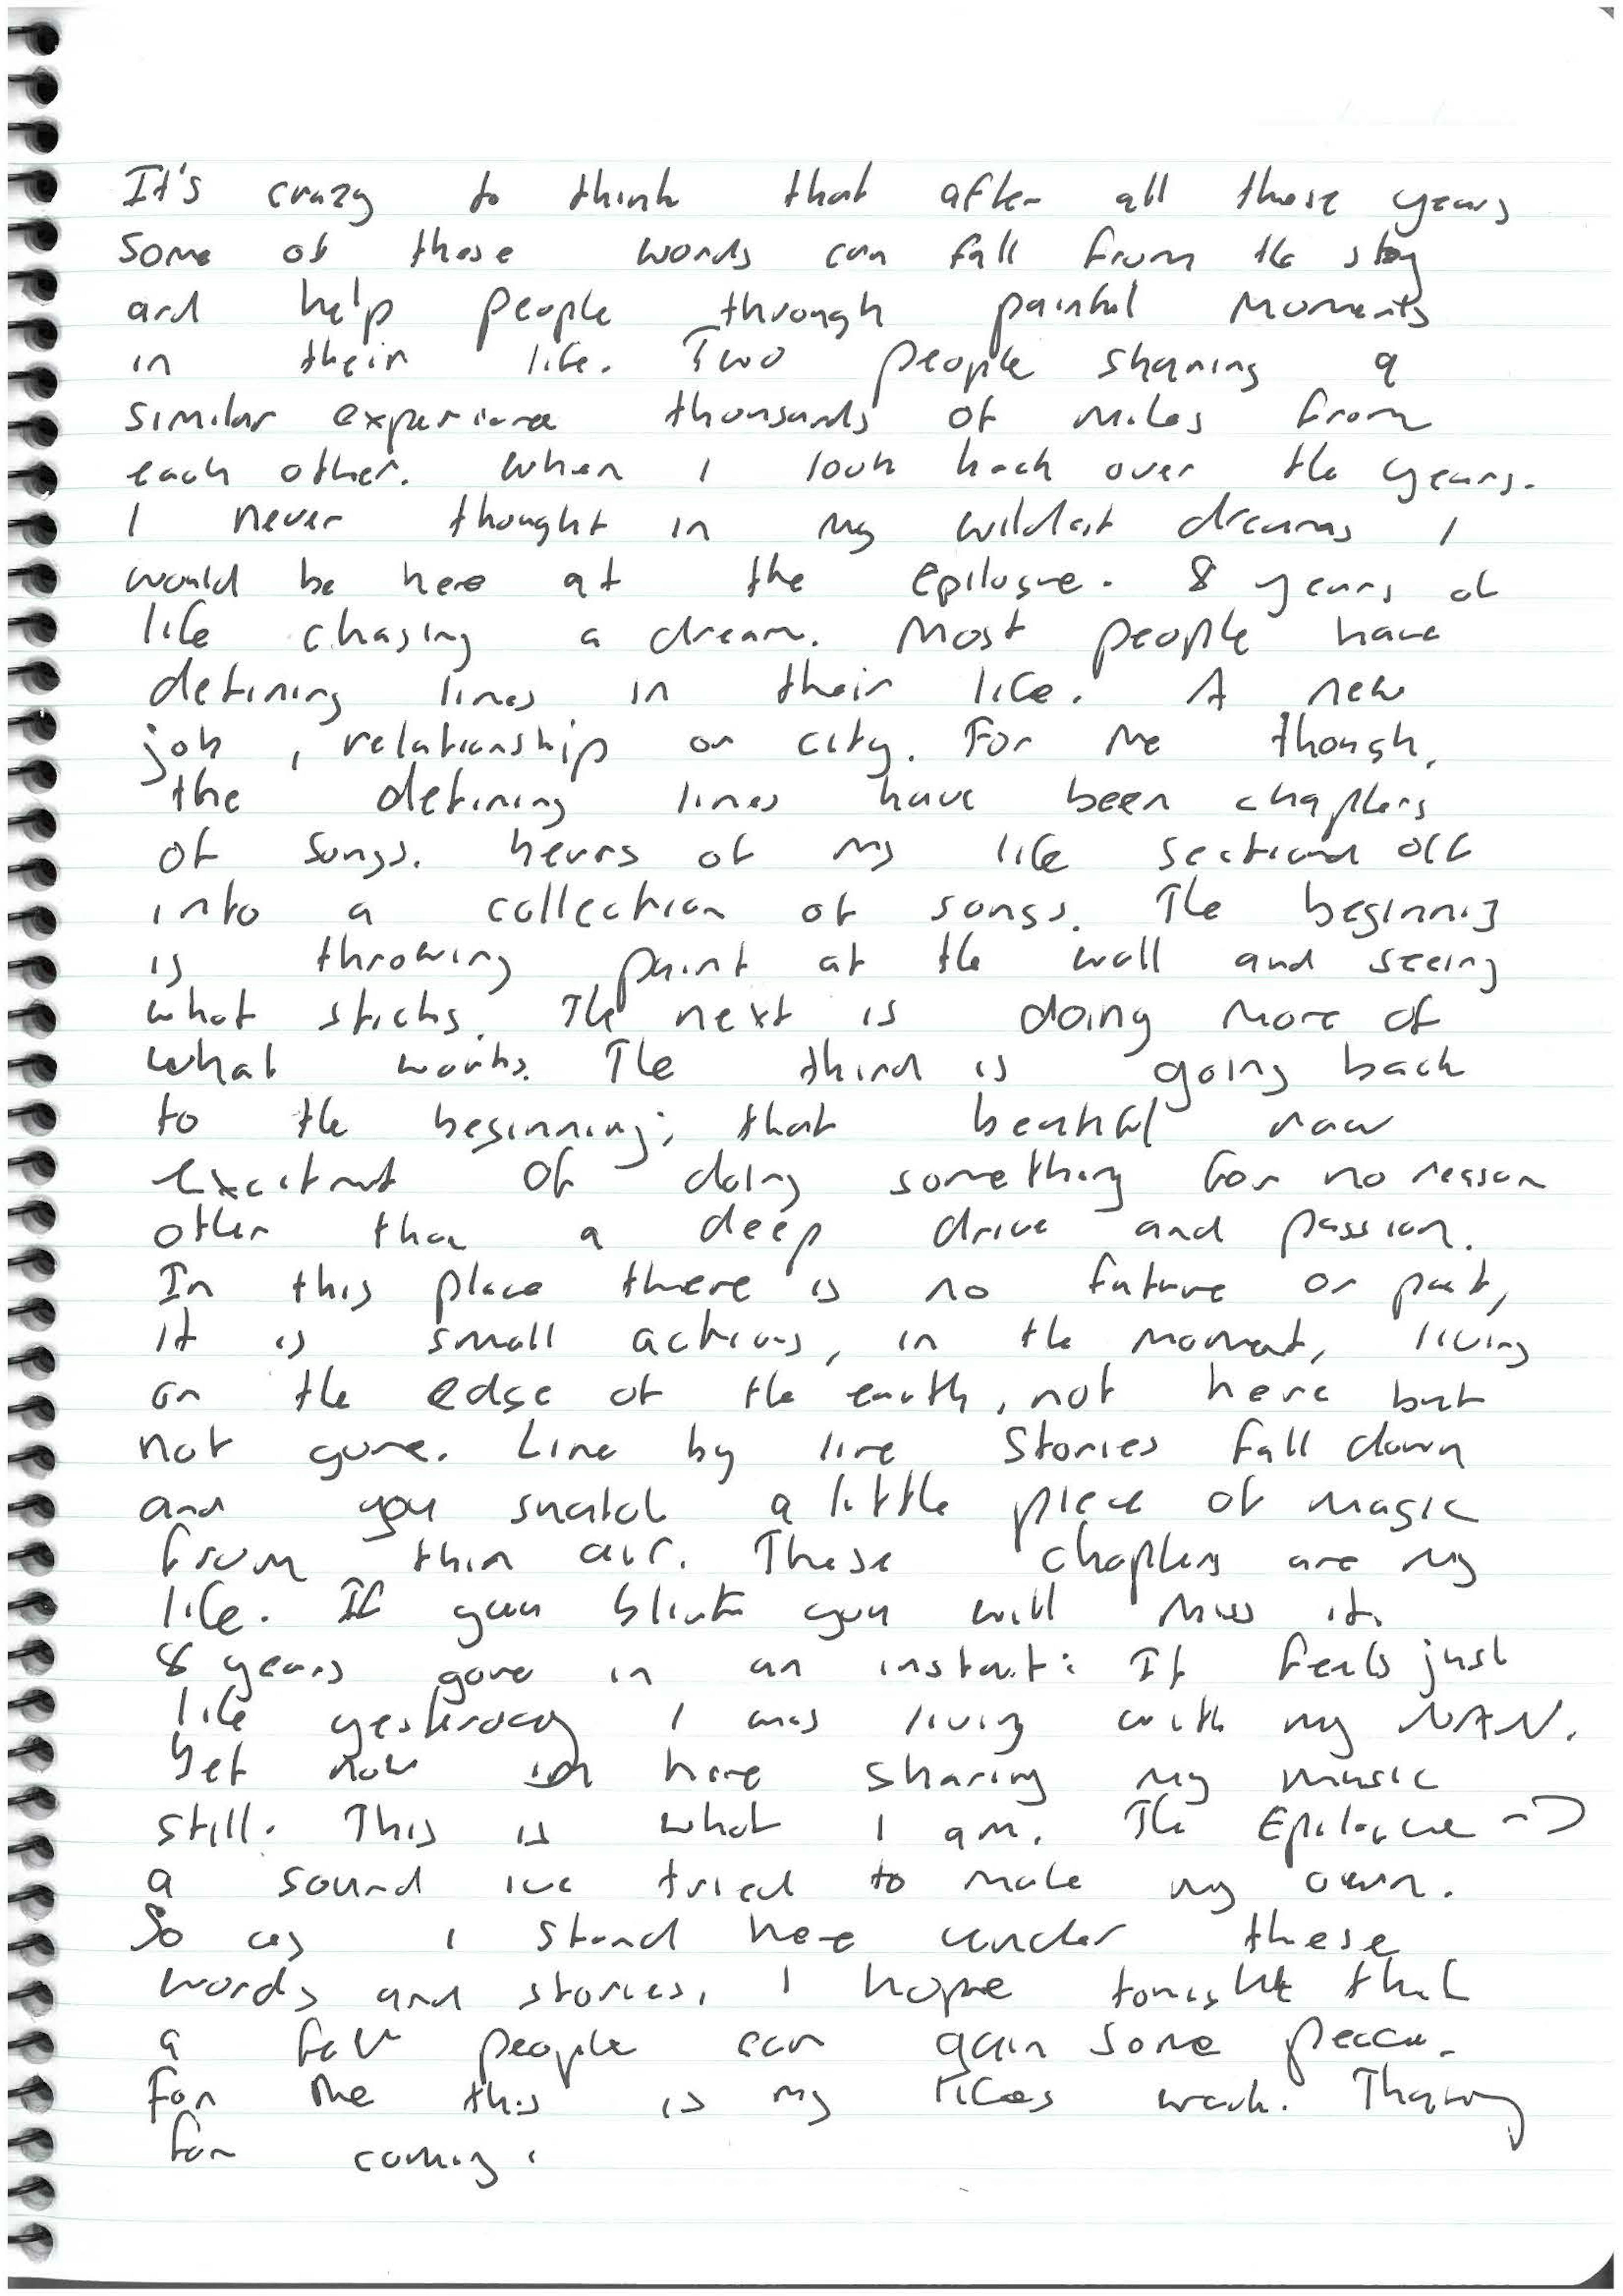 It's crazy to think that after all these years
some of these words can fall from the sky
and help people through painful moments
in their life. Two people sharing a
similar experience thousands of miles from
each other. When I look back over the years.
I never thought in my wildest dreams I
would be here at the epilogue. 8 years of
life chasing a dream. Most people have
defining lines in their life. A new
job, relationship or city. For me though,
the defining lines have been chapters
of songs. of my life sectioned off
into a collection of songs. The beginning
is throwing paint at the wall and seeing
what sticks. The next is doing more of
what works. The third is going back
to the beginning; that beautiful raw
excitment of doing something for no reason
other than a deep drive and passion.
In this place there is no future or past,
it is small actions, in the moment, living
on the edge of the earth, not here but
not gone. Line by line stories fall down
and you snatch a little piece of magic
from thin air. These chapters are my
life. If you blink you will miss it.
8 years gone in an instant: It feels just
like yesterday I was living with my NAN.
Yet now im here sharing my music
still. This is what I am. The Epilogue ->
a sound ive tried to make my own.
So as I stand here under these
words and stories, I hope tonight that
a few people can gain some peace.
For me this is my lifes work. Thankyou
for coming.